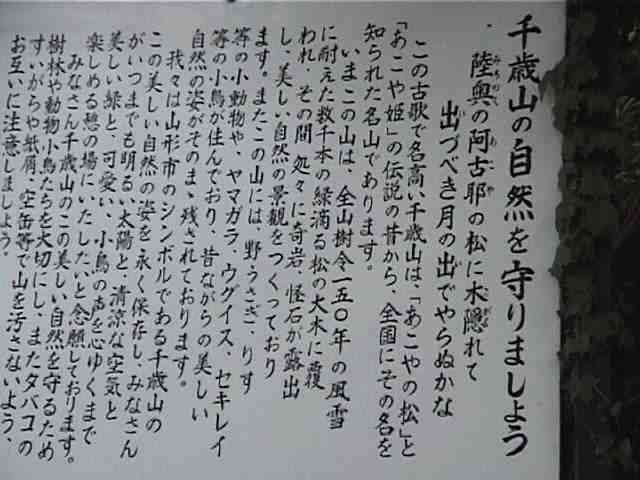 千歳山の自然を守りましょう
陸奥の阿古耶の松に木隠れて
みちのく あこや こがく
出づべき月の出でやらぬかな
この古歌で名高い千歳山は、「あこやの松」と
「あこや姫」の伝説の昔から、全国にその名を
知られた名山であります。
いまこの山は、全山樹令一五〇年の風雪
に耐えた数千本の緑滴る松の大木に覆
われ、その間処々に奇岩、怪石が露出
し、美しい自然の景観をつくっており
ます。またこの山には、野うさぎ、りす
等の小動物や、ヤマガラ、ウグイス、セキレイ
等の小鳥が住んでおり、昔ながらの美しい
自然の姿がそのまゝ残されております。
我々は山形市のシンボルである千歳山の
この美しい自然の姿を永く保存し、みなさん
がいつまでも明るい太陽と、清涼な空気と
美しい緑と、可愛い、小鳥の声を心ゆくまで
楽しめる憩の場にいたしたいと念願しております。
みなさん千歳山のこの美しい自然を守るため
樹林や動物小鳥たちを大切にし、またタバコの
すいがらや紙屑、空缶等で山を汚さないよう、
お互いに注意しましょう。